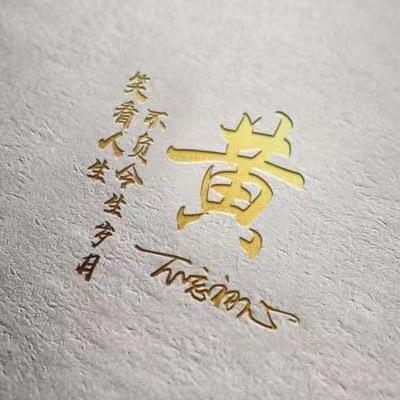 黄
笑看人生
不负今生岁月
不忘初心